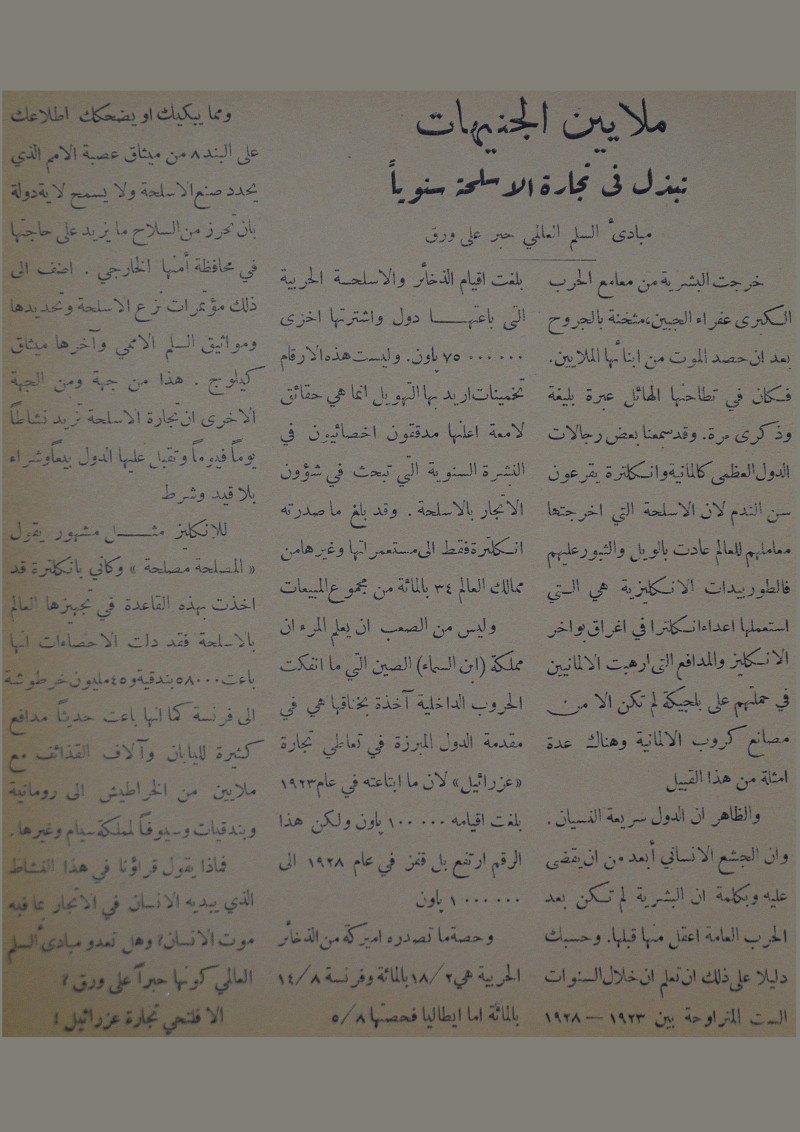 ملايين الجنيهات
تبذل في تجارة الاسلحة سنوياً
مبادئ السلم العالمي حبر على ورق
خرجت البشرية من معامع الحرب
الكبرى عفراء الجبين، مثخنة بالجروح
بعد ان حصد الموت من ابنائها الملايين.
فكان في تطاحنها الهائل عبرة بليغة
وذكرى مرة. وقد سمعنا بعض رجالات
الدول العظمى كالمانية وانكلترة يقرعون
سن الندم لان الاسلحة التي اخرجتها
معاملهم للعالم عادت بالويل والثبور عليهم
فالطوربيدات الانكليزية هي التي
استعملها اعداء انكلترا في اغراق بواخر
الانكليز والمدافع التي ارهبت الالمانيين
في حملتهم على بلجيكة لم تكن الا من
مصانع كروب الالمانية وهناك عدة
امثلة من هذا القبيل
والظاهر ان الدول سريعة النسيان.
وان الجشع الانساني أبعد من ان يقضى
عليه وبكلمة ان البشرية لم تكن بعد
الحرب العامة اعقل منها قبلها. وحسبك
دليلا على ذلك ان تعلم ان خلال السنوات
الست المتراوحة بين ١٩٢٣ — ١٩٢٨
بلغت اقيام الذخائر والاسلحة الحربية
التي باعتها دول واشترتها اخرى
٧٥٠٠٠٠٠٠ پاون. وليست هذه الارقام
تخمينات اريد بها التهويل انما هي حقائق
لامعة اعلنها مدققون اخصائيون في
النشرة السنوية التي تبحث في شؤون
الاتجار بالاسلحة. وقد بلغ ما صدرته
انكلترة فقط الى مستعمراتها وغيرها من
ممالك العالم ٣٤ بالمائة من مجموع المبيعات
وليس من الصعب ان يعلم المرء ان
مملكة (ابن السماء) الصين التي ما انفكت
الحروب الداخلية آخذة بخناقها هي في
مقدمة الدول المبرزة في تعاطي تجارة
«عزرائيل» لان ما ابتاعته في عام ١٩٢٣
بلغت اقيامه ١٠٠٠٠٠ پاون ولكن هذا
الرقم ارتفع بل قفز في عام ١٩٢٨ الى
١٠٠٠٠٠٠ پاون
وحصة ما تصدره اميركة من الذخائر
الحربية هي ١٨/٢ بالمائة وفرنسة ١٤/٨
بالمائة اما ايطاليا فحصتها ٥/٨
ومما يبكيك او يضحكك اطلاعك
على البند ٨ من ميثاق عصبة الامم الذي
يحدد صنع الاسلحة ولا يسمح لاية دولة
بان تحرز من السلاح ما يزيد على حاجتها
في محافظة أمنها الخارجي. اضف الى
ذلك مؤتمرات نزع الاسلحة وتحديدها
ومواثيق السلم الاممي وآخرها ميثاق
كيلوج. هذا من جهة ومن الجهة
الاخرى ان تجارة الاسلحة تزيد نشاطاً
يوماً فيوماً وتقبل عليها الدول بيعاً وشراء
بلا قيد وشرط
للانكليز مثل مشهور يقول
«المصلحة مصلحة» وكاني بانكلترة قد
اخذت بهذه القاعدة في تجهيزها العالم
بالاسلحة فقد دلت الاحصاءات انها
باعت ٥٨٠٠٠ بندقية و٤٥ مليون خرطوشة
الى فرنسة كما انها باعت حديثاً مدافع
كثيرة لليابان وآلاف القذائف مع
ملايين من الخراطيش الى رومانية
وبندقيات وسيوفاً لمملكة سيام وغيرها.
فماذا يقول قراؤنا في هذا النشاط
الذي يبديه الانسان في الاتجار بما فيه
موت الانسان؟ وهل تعدو مبادئ السلم
العالمي كونها حبراً على ورق؟
الا فلتحي تجارة عزرائيل!